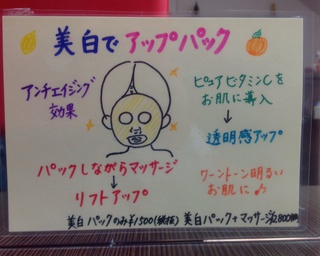 美白で アップパック
アンチエイジング
効果
ピュアビタミンCを
お肌に導入
↓
透明感アップ
パックしながらマッサージ
↓
リフトアップ
ワントーン明るい
お肌に♪
美白パックのみ¥1500(税抜) 美白パック+マッサージ¥2800(税抜)